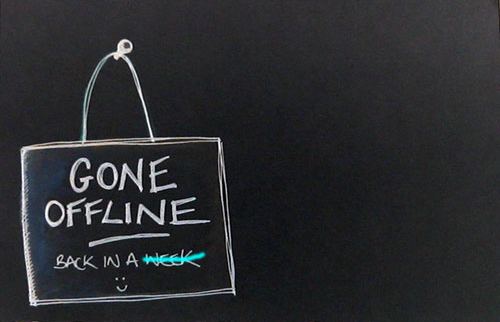 GONE
OFFLINE
BACK IN A WEEK